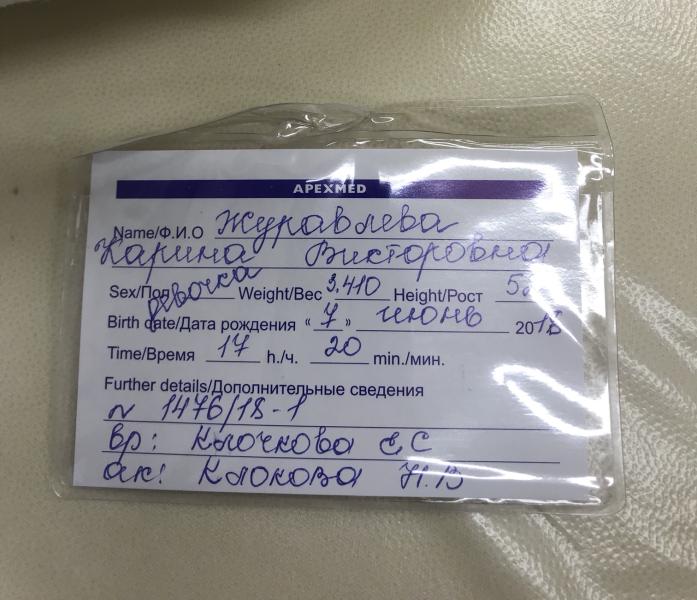 APEXMED
Name/Ф.И.О Журавлева
Карина Викторовна
Sex/Пол девочка Weight/Вес 3.410 Height/Рост
Birth date/Дата рождения «7» июнь 2018
Time/Время 17 h./ч. 20 min./мин.
Further details/Дополнительные сведения
№ 1476/18-1
вр: Клочкова Е С
ак: Клокова Н.В